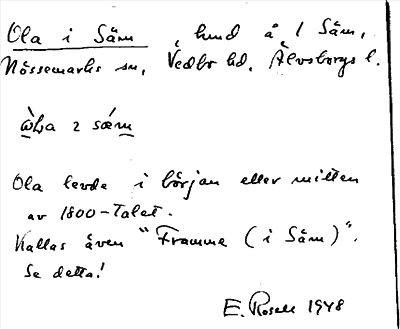 Ola i Säm, hund å 1 Säm,
Nössemarks sn, Vedbo hd, Älvsborgs l.
ὼLa 2 sǽm
Ola levde i början eller mitten
av 1800-talet.
Kallas även "Framme (i Säm)".
Se detta!
E. Rosell 1948